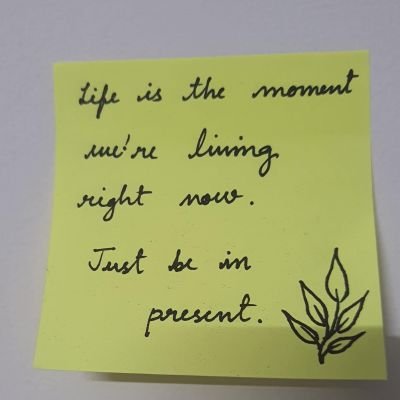 Life is the moment
we're living
right now.
Just be in
present.